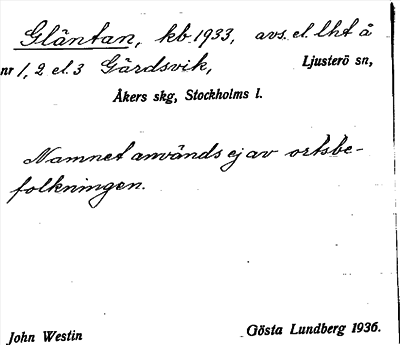 Gläntan, kb. 1933, avs. el. lht å
nr 1, 2 el. 3 Gärdsvik, Ljusterö sn,
Åkers skg, Stockholms l.
Namnet används ej av ortsbe-
folkningen.
John Westin Gösta Lundberg 1936.